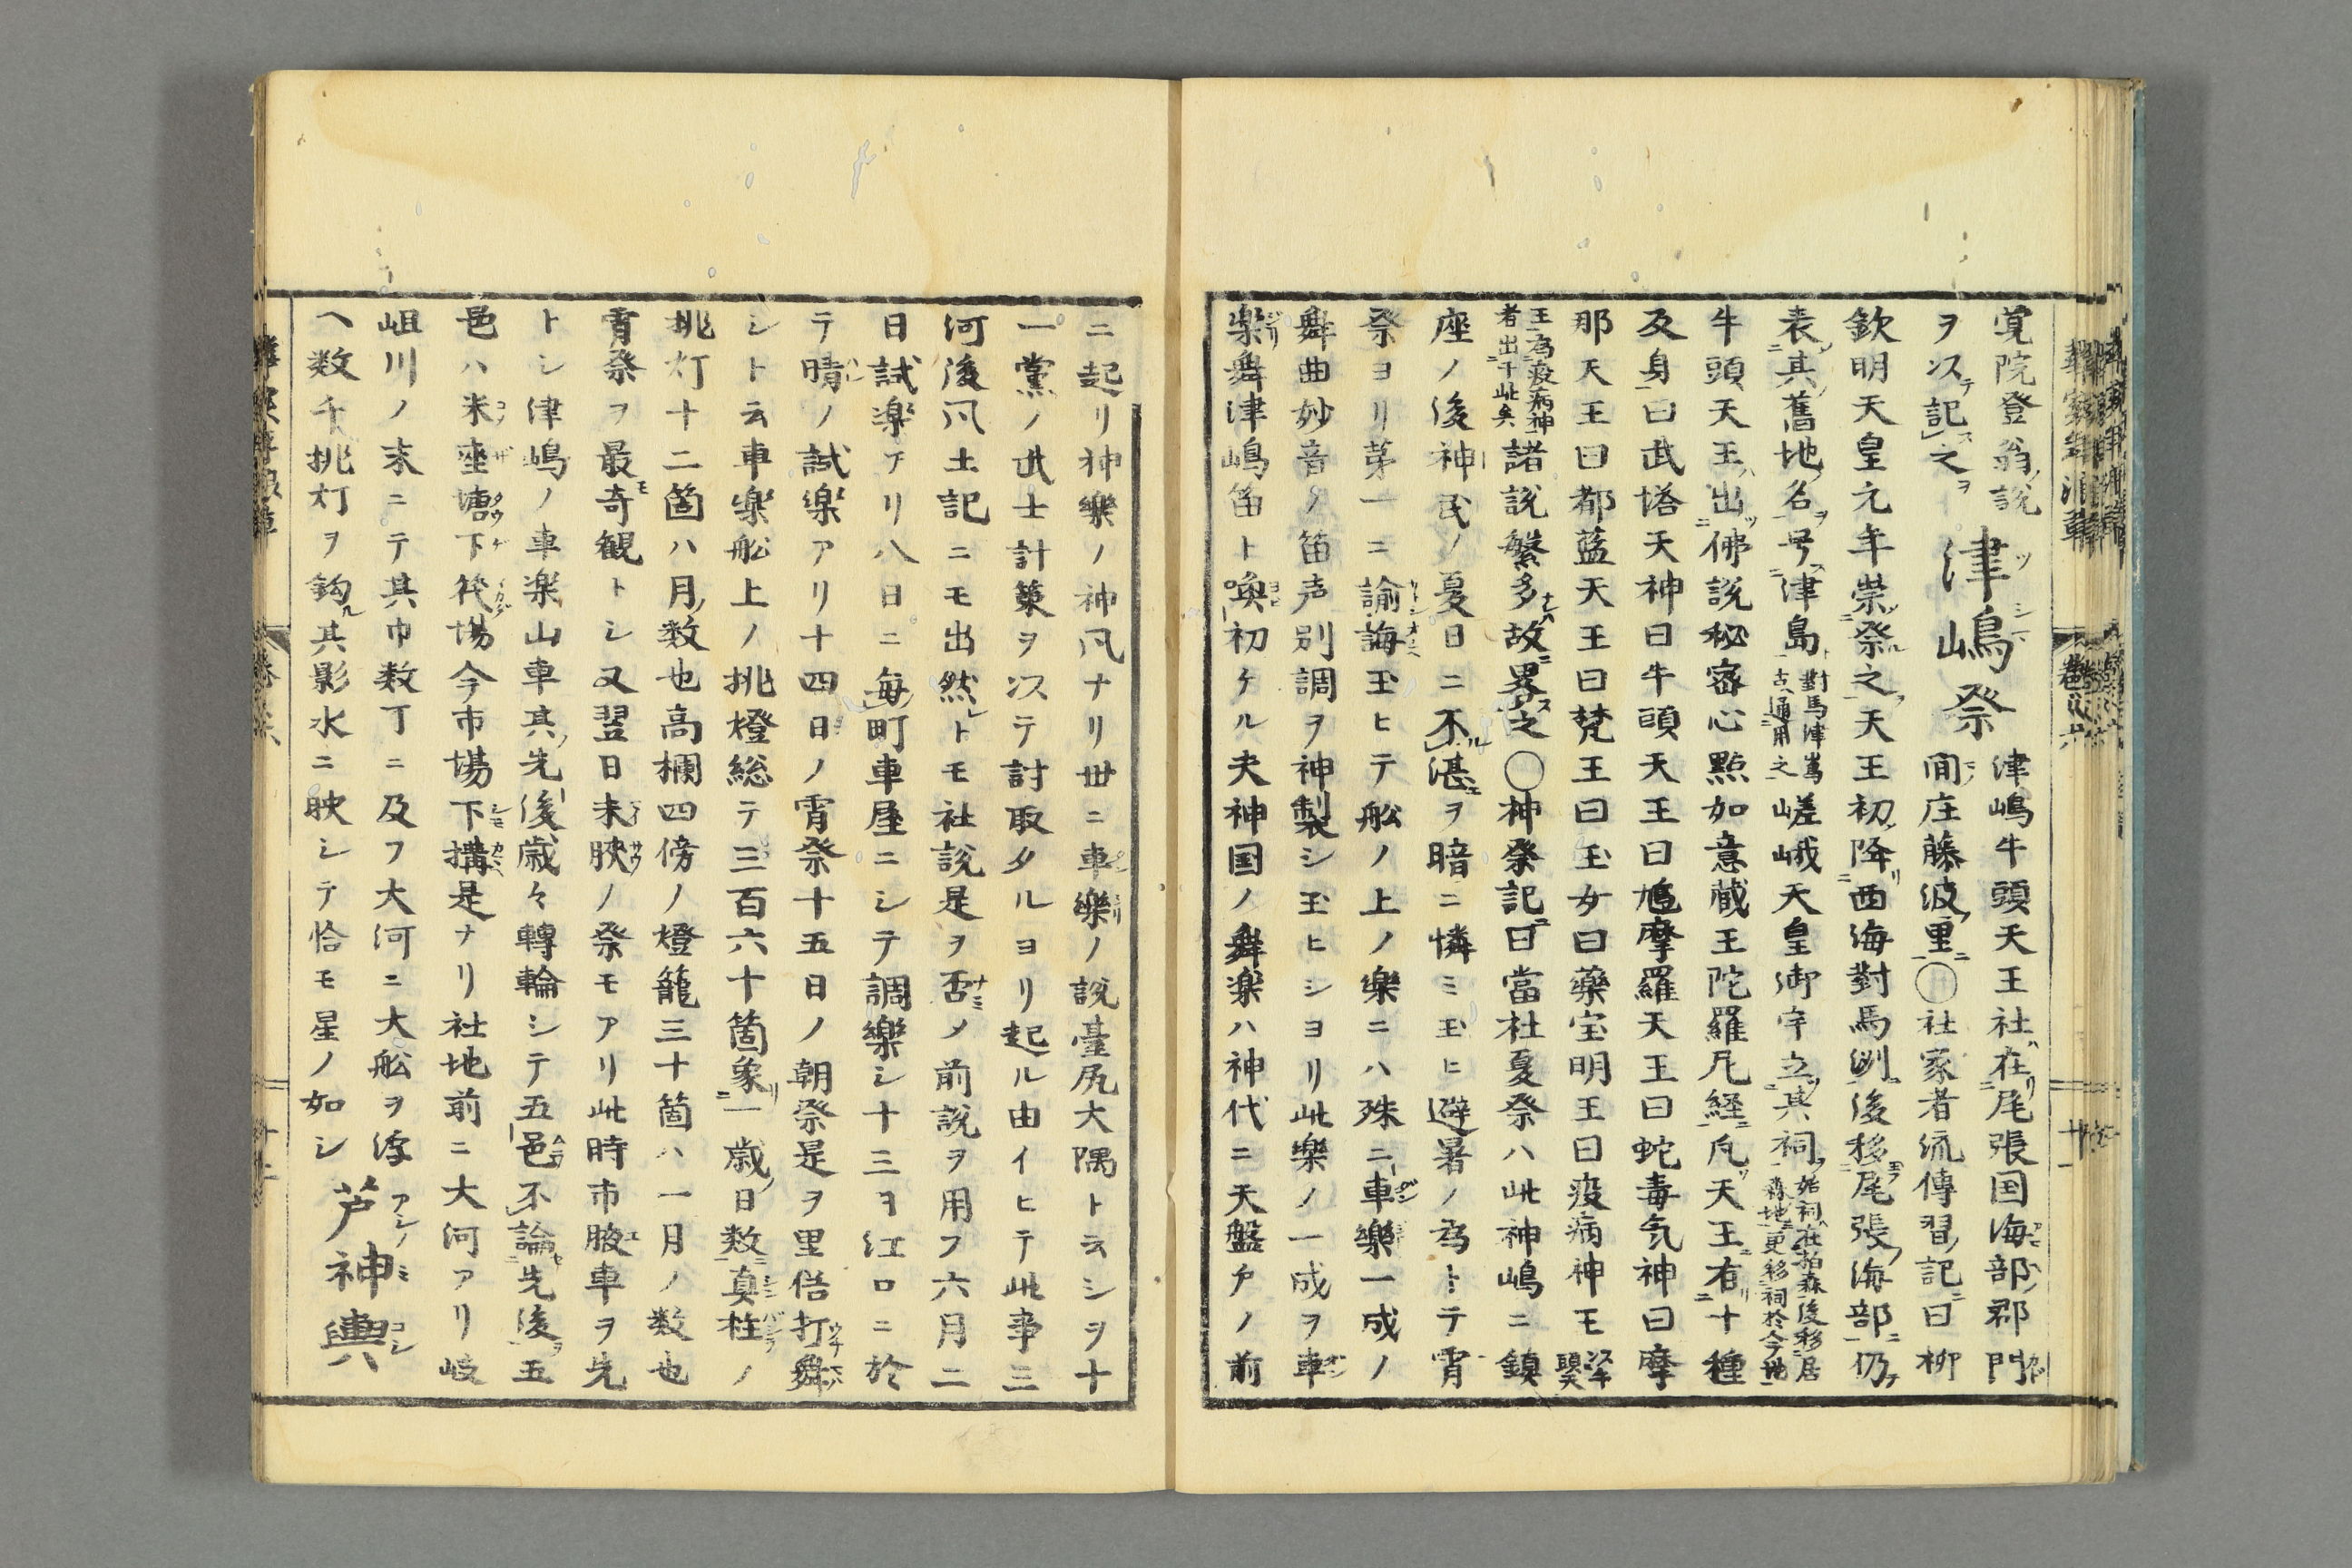 覚院登翁説
ヲ以テ記ス之ヲ
津嶋祭
ツシマ
津嶋牛頭天王社在尾張国海部郡門
間庄藤波里〇社家者流傳習記曰柳
欽明天皇元年崇祭之天王初降西海對馬洲後移尾張海部仍
表其舊地名号津島
對馬津嶌
古通用之
嵯峨天皇御宇立其祠
始祠在柏森後移居
森地更移祠於今地
牛頭天王出佛説秘密心點如意蔵王陀羅尼経凡天王有十種
及身曰武塔天神曰牛頭天王曰鳩摩羅天王曰蛇毒気神曰摩
那天王曰都藍天王曰梵王曰玉女曰薬宝明王曰疫病神王
王為疫病神
者出于此矣
諸説繁多故畧之〇神祭記曰當社夏祭ハ此神嶋ニ鎮
座ノ後神民ノ憂日ニ不湛ヲ暗ニ憐ミ玉ヒ避暑ノ為トテ宵
祭ヨリ第一ニ諭誨玉ヒテ舩ノ上ノ樂ニハ殊ニ車樂一成ノ
舞曲妙音ノ笛声別調ヲ神製シ玉ヒシヨリ此樂ノ一成ヲ車
楽舞津嶋笛ト喚初ケル夫神国ノ舞楽ハ神代ニ天盤戸ノ前
ニ起リ神樂ノ神凬ナリ丗ニ車樂ノ説臺尻大隅ト云シヲ十
一黨ノ武士計策ヲ以テ討取タルヨリ起ル由イヒテ此事三
河後凬土記ニモ出然トモ社説是ヲ否メ前説ヲ用フ六月二
日試楽アリ八日ニ毎町車屋ニシテ調樂シ十三ヲ江口ニ於
テ晴ノ試楽アリ十四日ノ宵祭十五日ノ朝祭是ヲ里俗打舞
シト云車楽舩上ノ挑燈総テ三百六十箇象一歳日数真柱ノ
挑灯十二箇ハ月数也高欄四傍ノ燈籠三十箇ハ一月ノ数也
宵祭ヲ最奇観トシ又翌日未映ノ祭モアリ此時市腋車ヲ先
トシ津嶋ノ車楽山車其先後歳々轉輪シテ五邑不論先後五
邑ハ米座塘下筏場今市場下搆是ナリ社地前ニ大河アリ岐
岨川ノ末ニテ其巾数丁ニ及フ大河ニ大舩ヲ浮
ヘ数千挑灯ヲ鈎其影水ニ映シテ恰モ星ノ如シ
芦神輿
アシノミコシ